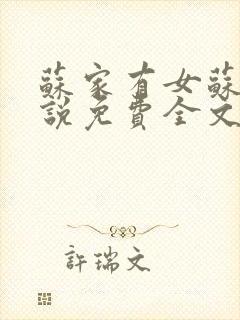 蘇家有女蘇
說免費全文
許瑞文